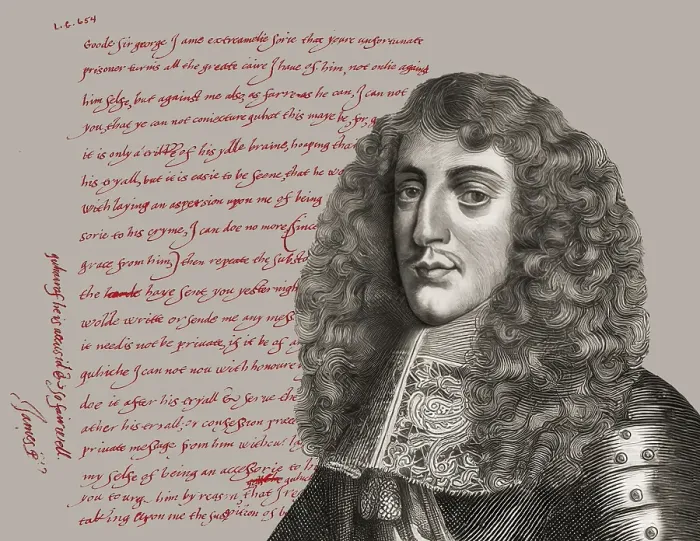 L. C. 654
Goode Sir george I ame extreamelie sorie that youre unfortunate
prisoner turnis all the greate caire I have of him, not onlie against
him selfe, but against me also, as farre as he can, I can not
you, that ye can not coniecture quhat this maye be, for, g
it is only a of his ydle braine, hooping tha
his tryall, but it is easie to be seene, that he wo
with laying an aspersion upon me of being
sorie to his cryme, I can doe no more (since
grace from him,) then repeate the substa
the haye sent you yesternigh
wolde writte or sende me any mess
it needis not be private, if it be of a
quhiche I can not nou with honoure
doe it after his tryall & serve the
ather his tryall, or confession præc
private message from him without la
my selfe of being an accessorie to hi
you to urge him by reason, that I re
taking upon me the suspicion of b
quhairof he is accusid & so fairwell.
James R